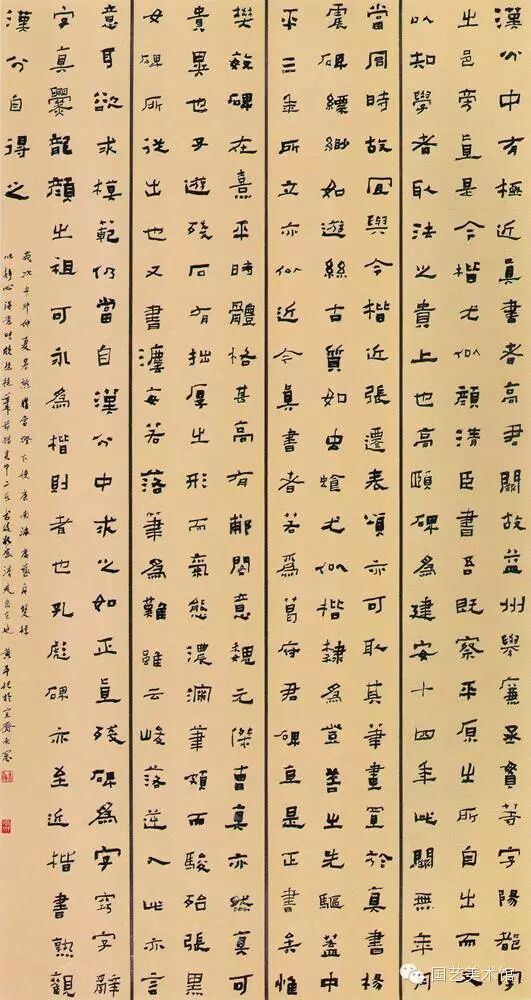 漢分中有極近真書者高君闕故益州舉廉丞貫等字陽都字
之邑旁直是今楷尤似顏清臣書吾既察平原之所自出而又
以知學者取法之貴上也高頤碑為建安十四年此闕無年月
當同時故冝與今楷近張遷表頌亦可取其筆畫置於真書楊
震碑縹緲如遊絲古質如虫蝕尤似楷隸為登善之先驅蓋中
平三年所立亦似近今真書者若為葛府君碑直是正書矣惟
樊敏碑在熹平時體格甚高有郙閣意魏元傑曹真亦然真可
貴異也子遊殘石有拙厚之形而氣態濃深筆頗而駿殆張黑
女碑所從出也又書濃每若落筆為難雖云峻落逆入此亦言
意耳欲求模範仍當自漢分中求之如正直殘碑為字竅字辭
字真爨龍顏之祖可永為楷則者也孔彪碑亦至近楷書熟觀
漢分自得之
歲次辛卯仲夏
国艺美术馆